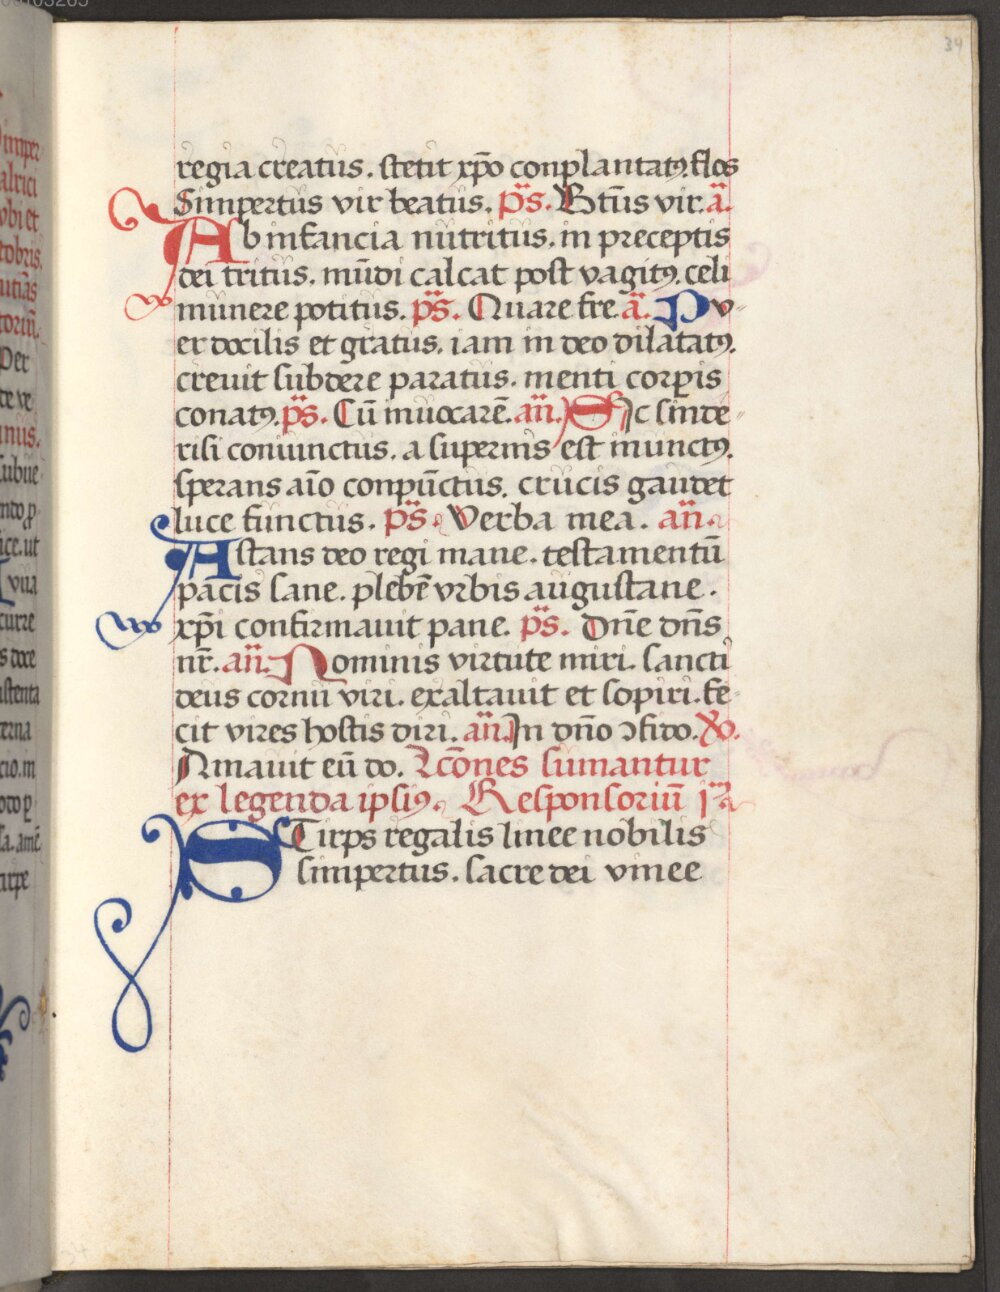 34
regia creatus. stetit xp̄o conplantatꝰ flos
Simpertus vir beatus. p̄s. Bt̄us vir. a̅.
Ab infancia nutritus. in preceptis
dei tritus. mu̅di calcat post vagitꝰ. celi
munere potitus. p̄s. Quare fre. a̅. Pv-
er docilis et gratus. iam in deo dilatatꝰ.
creuit subdere paratus. menti corꝑis
conatꝰ. p̄s. Cu̅ inuocare̅. an̅. Sic sinde-
risi coniunctus. a supernis est inunctꝰ.
sperans aı̅o conpu̅ctus. crucis gaudet
luce functus. p̄s. Verba mea. an̅.
Astans deo regi mane. testamentu̅
pacis sane. plebe̅ vrbis augustane.
xp̄i confirmauit pane. p̄s. Dn̅e dn̅s
nr̅. an̅. Nominis virtute miri. sancti
deus cornu viri. exaltauit et sopiri. fe-
cit vires hostis diri. an̅. In dn̅o ↄfido. V.
Amauit eu̅ do. Lc̅ones sumantur
ex legenda ipsiꝰ. Responsoriu̅ jᵐ
STirps regalis linee nobilis
simpertus. sacre dei vinee